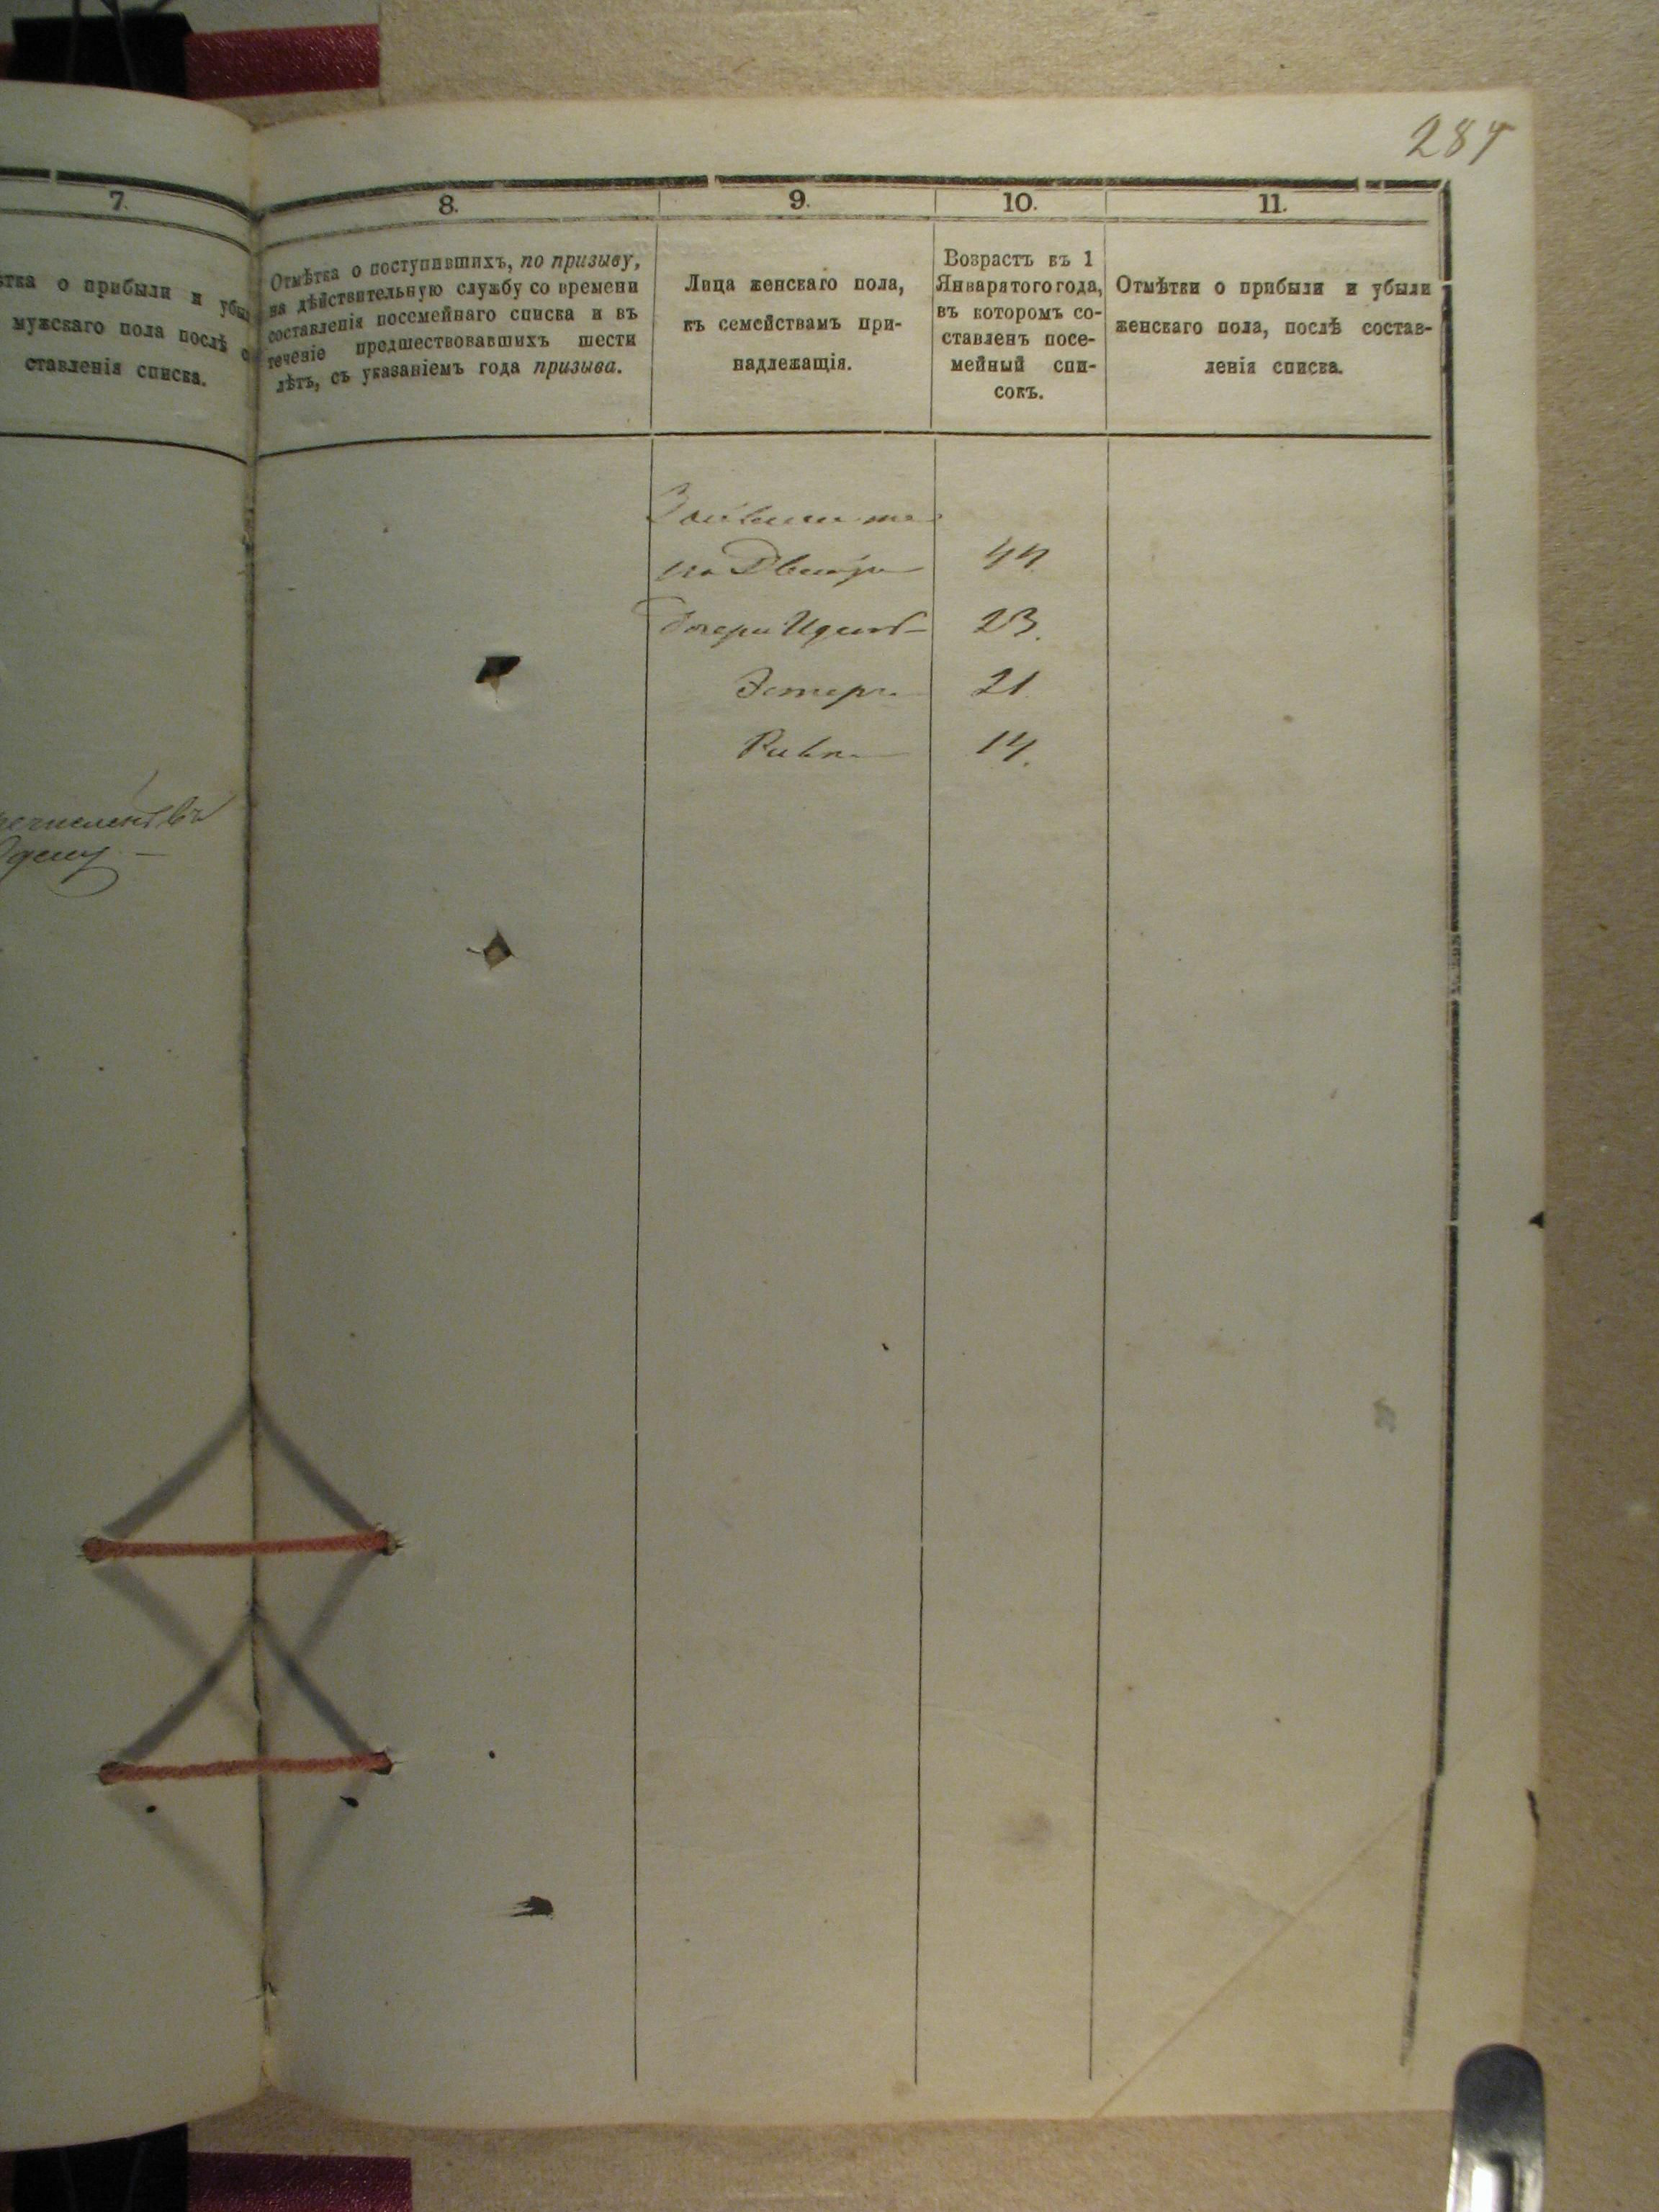 287
7.
8.
9.
10.
11.
о прибыли и
мужскаго пола послѣ
ставленія списка.
Отмѣтка о поступившихъ, по призыву,
на дѣйствительную службу со времени
составленія посемейнаго списка и въ
теченіе предшествовавшихъ шести
лѣтъ, съ указаніемъ года призыва.
Лица женскаго пола,
къ семействамъ при-
надлежащія.
Возрастъ въ 1
Января того года,
въ которомъ со-
ставленъ посе-
мейный спи-
сокъ.
Отмѣтки о прибыли и убыли
женскаго пола, послѣ состав-
ленія списка.
44
23.
Эстеръ 21.
Ривка 14.